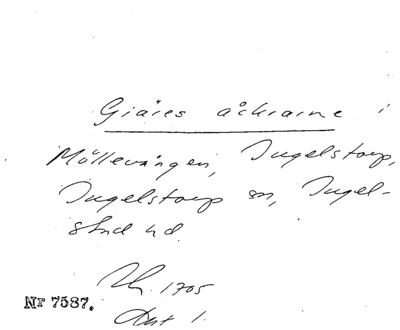 Giäres åkrarne i
Möllevången, Ingelstorp,
Ingelstorp sn, Ingel-
stad hd
1705
Akt 1.
Nr 7587.